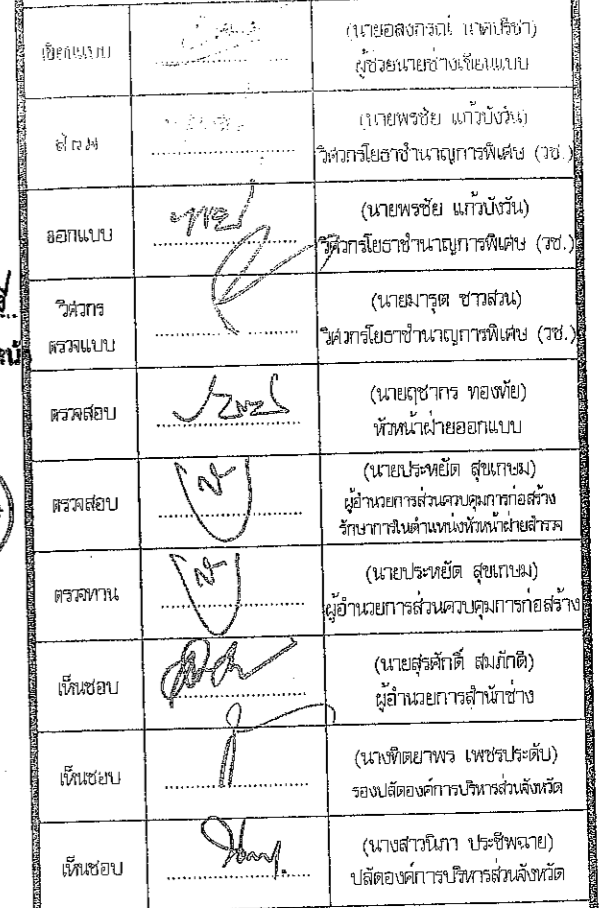 เขียนแบบ
ผู้ช่วยนายช่างเขียนแบบ
สำรวจ
(นายพรชัย แก้วบังวัน)
วิศวกรโยธาชำนาญการพิเศษ (วช.)
ออกแบบ
(นายพรชัย แก้วบังวัน)
วิศวกรโยธาชำนาญการพิเศษ (วช.)
วิศวกร
ตรวจแบบ
(นายมารุต ชาวสวน)
วิศวกรโยธาชำนาญการพิเศษ (วช.)
ตรวจสอบ
(นายฤชากร ทองทัย)
หัวหน้าฝ่ายออกแบบ
ตรวจสอบ
(นายประหยัด สุขเกษม)
ผู้อำนวยการส่วนควบคุมการก่อสร้าง
รักษาการในตำแหน่งหัวหน้าฝ่ายสำรวจ
ตรวจทาน
(นายประหยัด สุขเกษม)
ผู้อำนวยการส่วนควบคุมการก่อสร้าง
เห็นชอบ
(นายสุรศักดิ์ สมภักดี)
ผู้อำนวยการสำนักช่าง
เห็นชอบ
(นางทิตยาพร เพชรประดับ)
รองปลัดองค์การบริหารส่วนจังหวัด
เห็นชอบ
(นางสาวนิภา ประชีพฉาย)
ปลัดองค์การบริหารส่วนจังหวัด